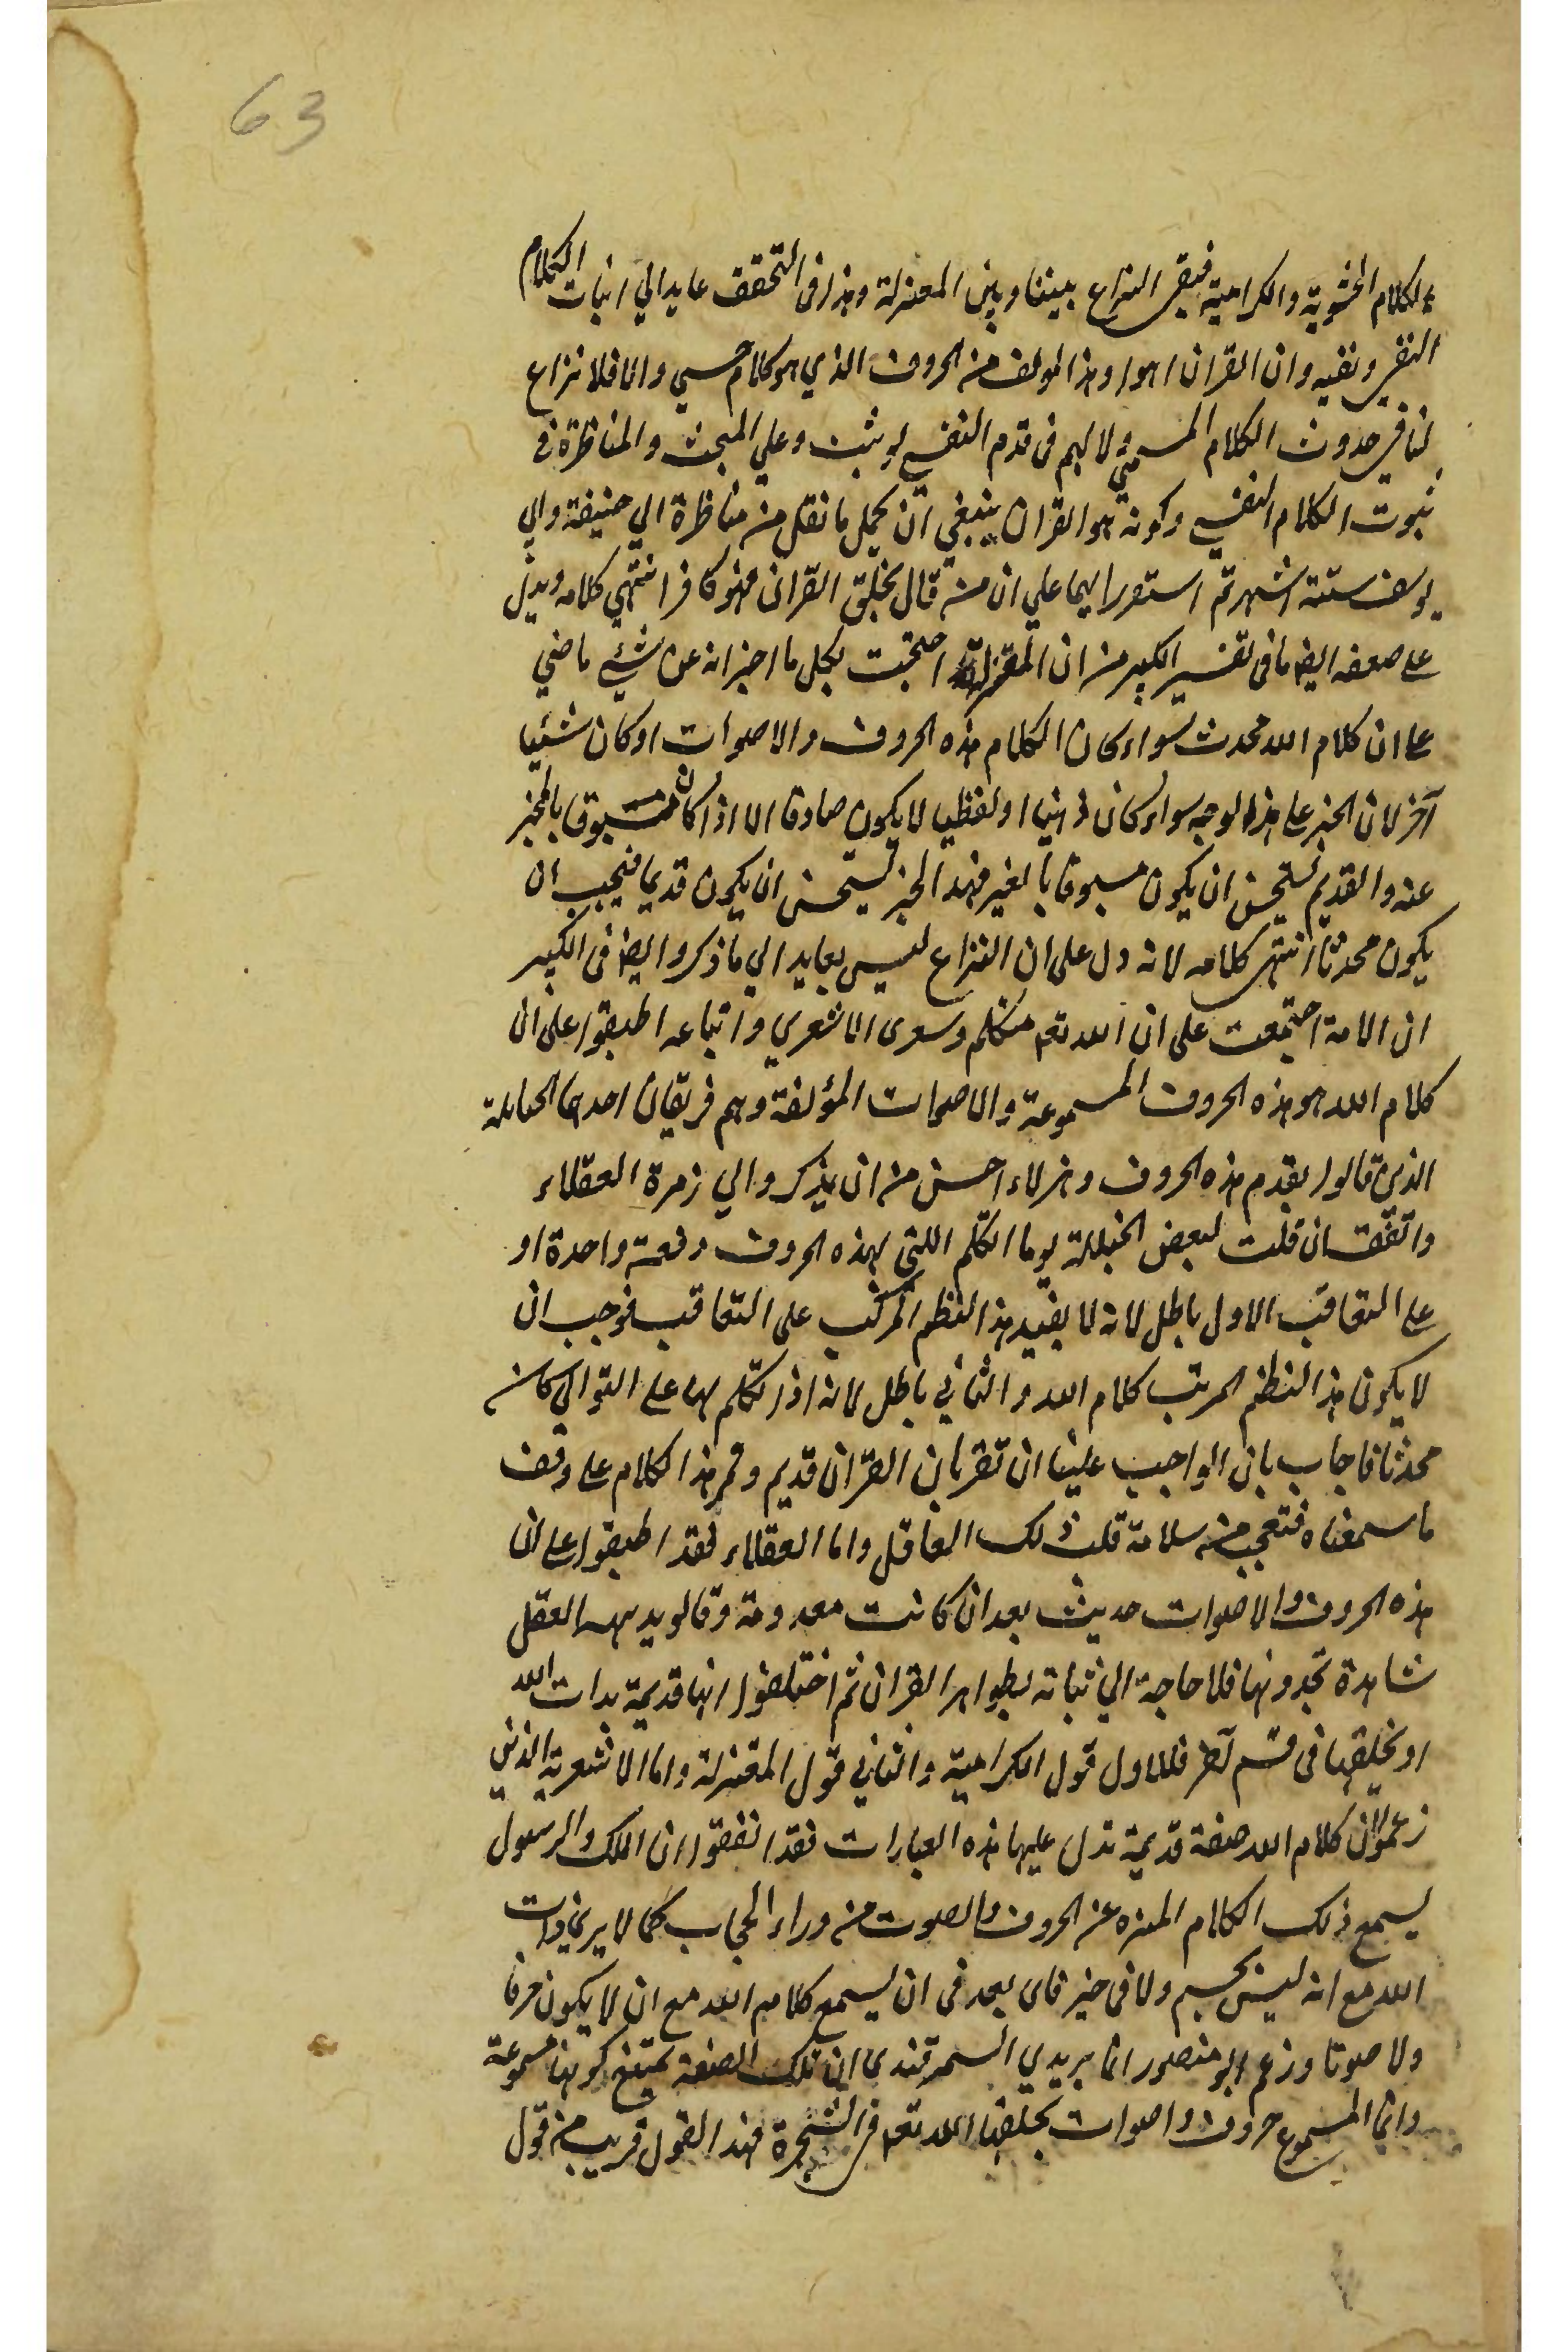 63
الكلام الحشوية والكرامية فبقى النزاع بيننا وبين المعتزلة وهذا فى التحقق عايد الي اثبات الكلام
النفسى ونفيه وان القران اهو او هذا المولف من الحروف الذي هو كلام حسي والا فلا نزاع
لنا في حدوث الكلام الحسي ولا لهم فى قدم النفسي لو ثبت وعلي المبحث والمناظرة فى
ثبوت الكلام النفسي وكونه هو القران ينبغي ان يحمل ما نقل من مناظرة ابي حنيفة وابي
يوسف ستة اشهر ثم استقر رايهما علي ان من قال بخلق القران فهو كافر انتهي كلامه ويدل
على ضعفه ايضا ما فى تفسير الكبير من ان المعتزلة احتجت بكل ما اخبر انه عن شئي ماضي
على ان كلام الله محدث سواء كان الكلام هذه الحروف والاصوات او كان شئيا
آخر لان الخبر على هذا الوجه سواء كان ذهنيا او لفظيا لا يكون صادقا الا اذا كان مسبوقا بالمخبر
عنه والقديم يستحيل ان يكون مسبوقا بالغير فهذا الخبر يستحيل ان يكون قديما فيجب ان
يكون محدثا انتهى كلامه لانه دل على ان النزاع ليس بعايد الي ما ذكروا ايضا فى الكبير
ان الامة اجتمعت على ان الله تعم متكلم وسوى الاشعري واتباعه اطبقوا على ان
كلام الله هو هذه الحروف المسموعة والاصوات المؤلفة وهم فريقان احدهما الحنابلة
الذين قالوا بقدم هذه الحروف وهولاء احسن من ان يذكروا الي زمرة العقلاء
واتفق ان قلت لبعض الحنبلة يوما التكلم اللتي بهذه الحروف دفعة واحدة او
على التعاقب الاول باطل لانه لا يفيد هذا النظم المركب على التعاقب فوجب ان
لا يكون هذا النظم المرتب كلام الله والثاني باطل لانه اذا تكلم بها على التوالي كانت
محدثا فاجاب بان الواجب علينا ان تقر بان القرآن قديم وقمر هذا الكلام على وقف
ما سمعناه فتعجب من سلامة قلب ذلك الغافل واما العقلاء فقد اطبقوا على ان
هذه الحروف والاصوات حديث بعد ان كانت معدومة وقالو بديهة العقل
شاهدة بحدوثها فلا حاجة الي اثباته بظواهر القران ثم اختلفوا انها قديمة بذات الله
او يخلقها فى قسم آخر فالاول قول الكرامية والثاني قول المعتزلة واما الاشعرية الذين
زعموا ان كلام الله صفة قديمة تدل عليها هذه العبارات فقد اتفقوا ان الملك والرسول
يسمع ذلك الكلام المنزه عن الحروف والصوت من وراء الحجاب كما لا يرى ذات
الله مع انه ليس بجسم ولا فى حيز فاى بعد فى ان يسمع كلام الله مع ان لا يكون حرفا
ولا صوتا وزعم ابو منصور الماتريدي السمرقندى ان تلك الصفة يمتنع كونها مسموعة
وانما المسموع حروف واصوات يخلقها الله تعم فى الشجرة فهذا القول قريب من قول